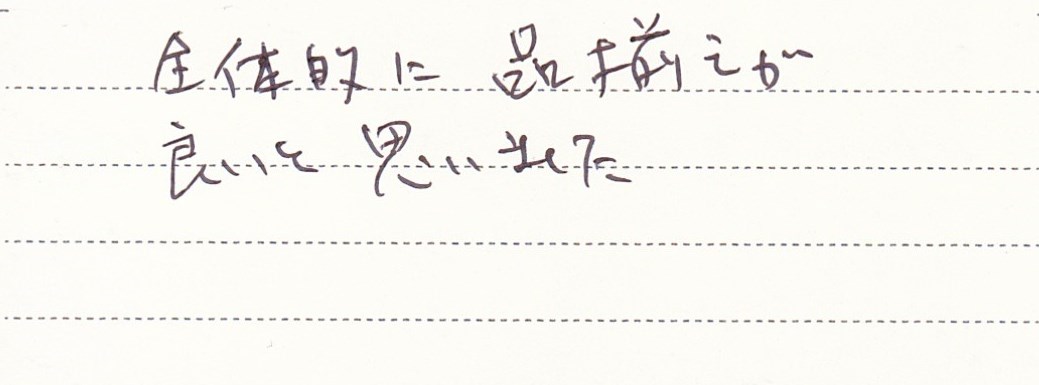 全体的に品揃えが
良いと思いました